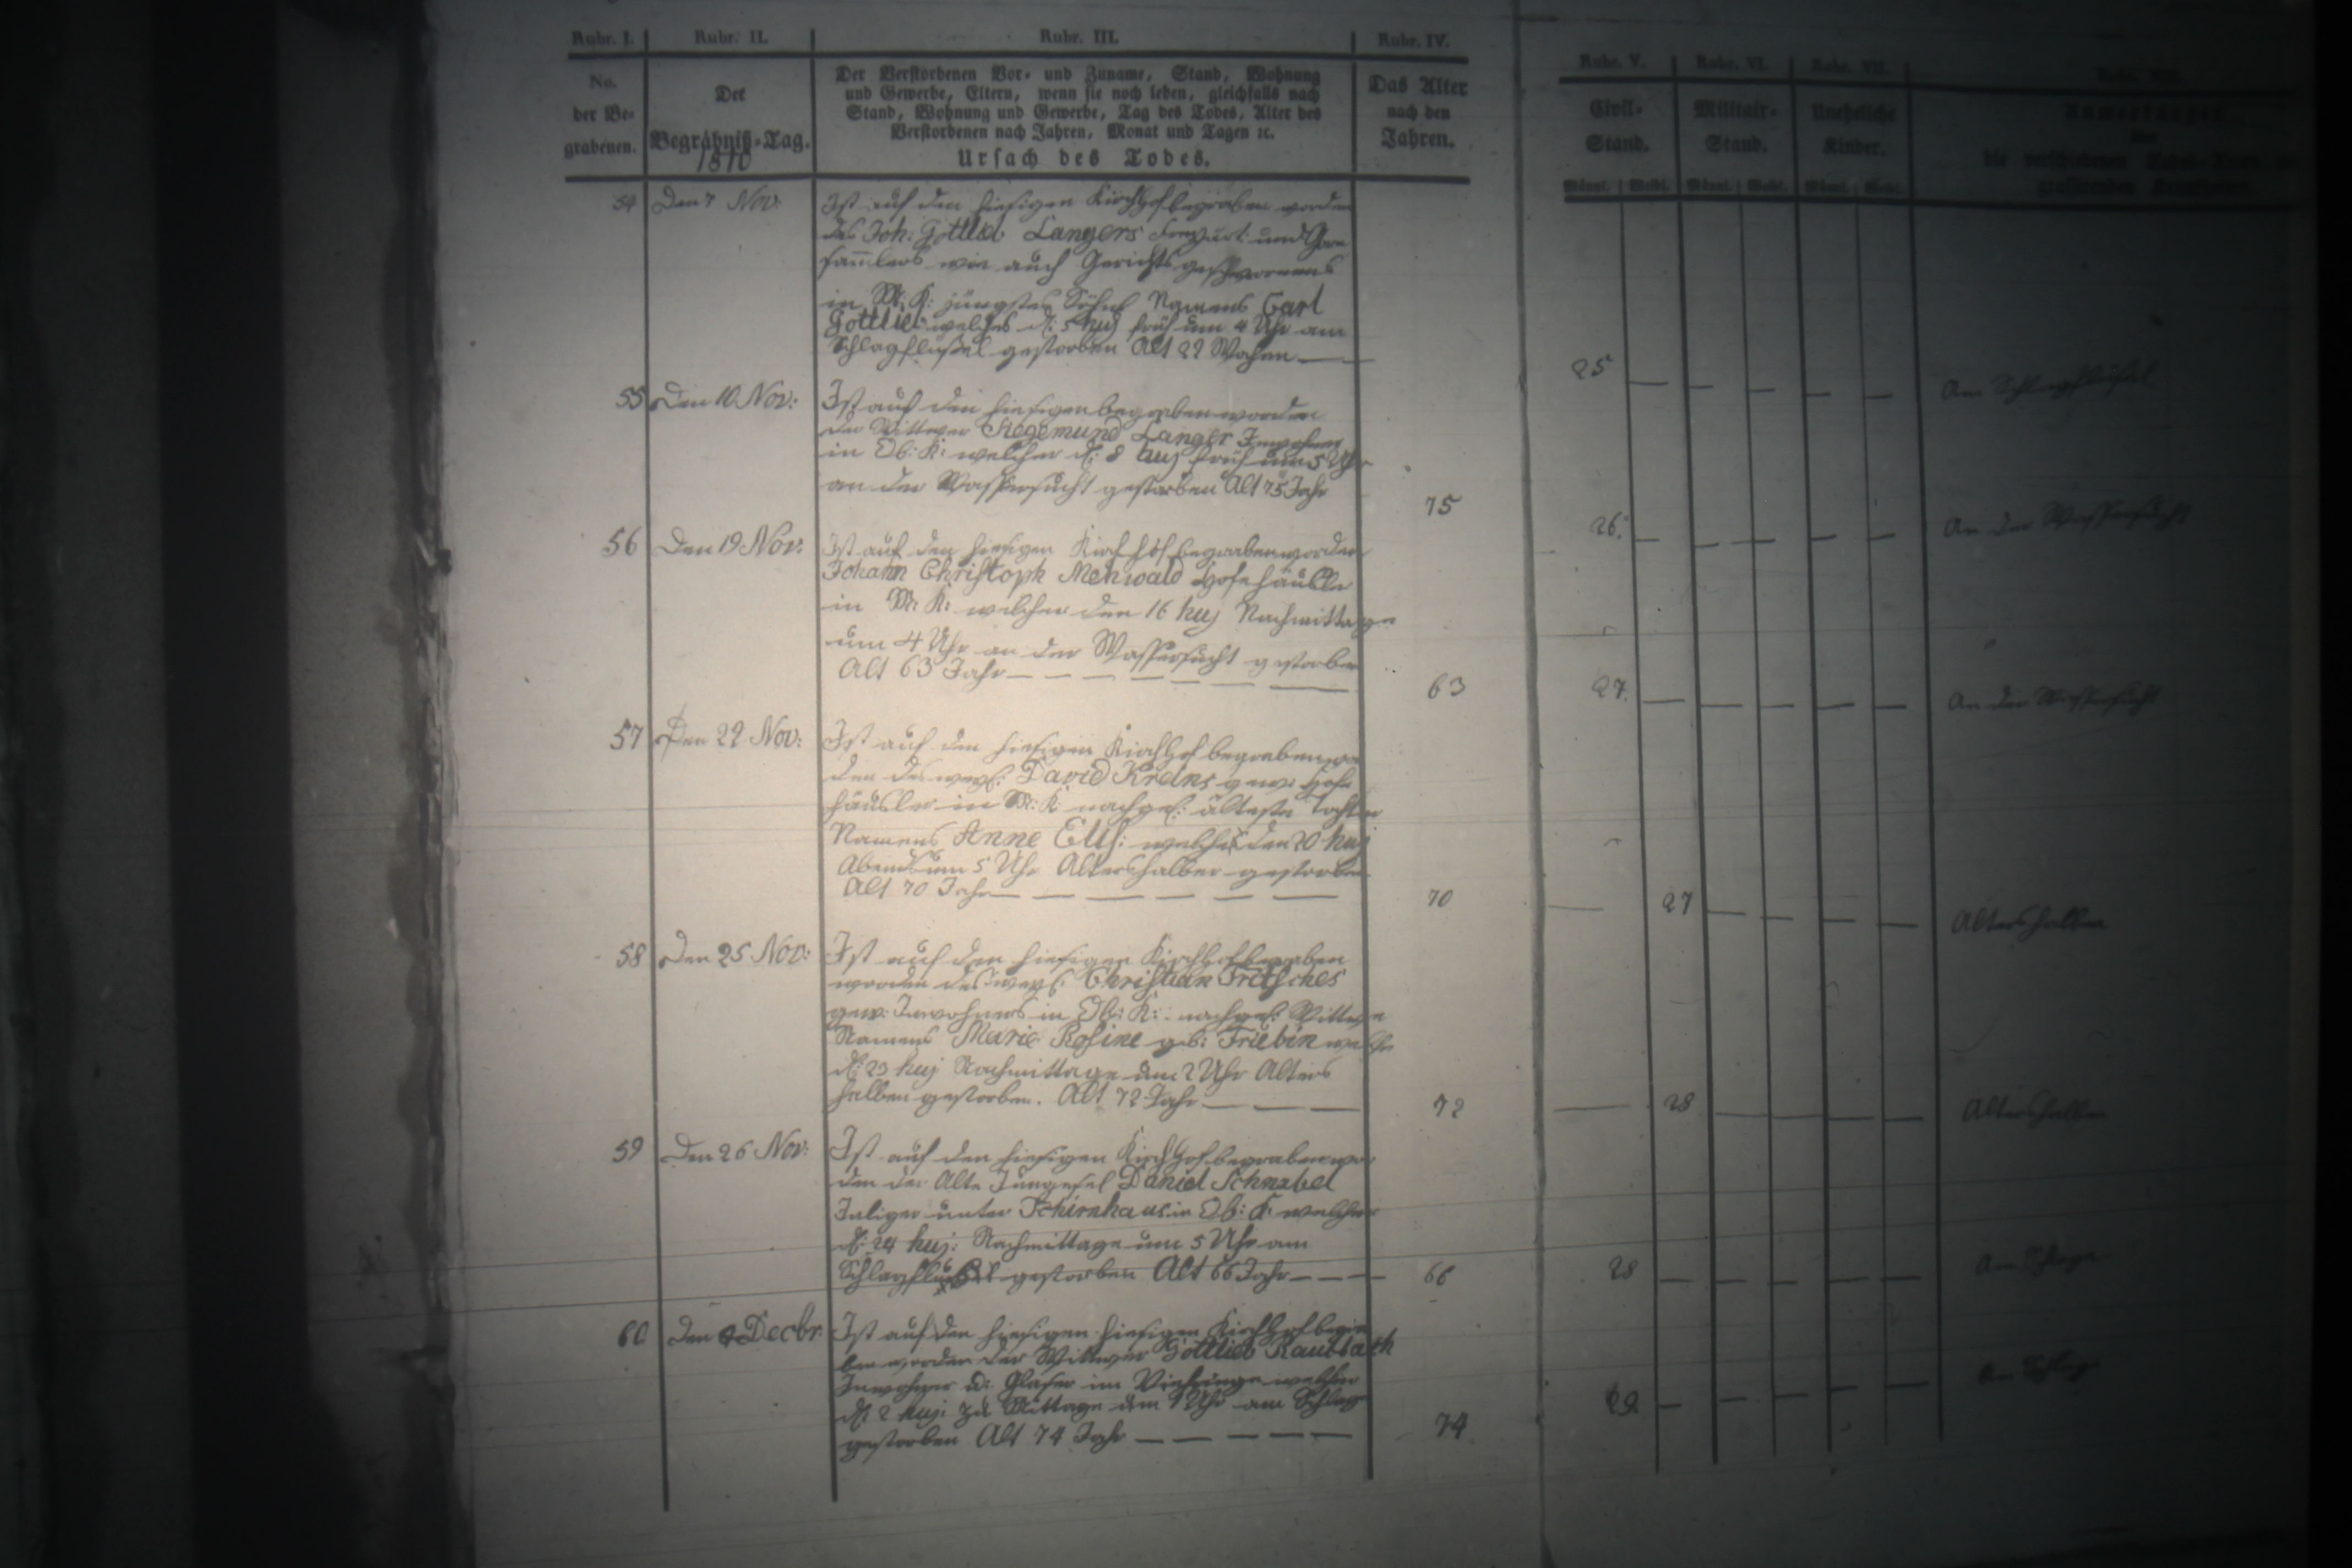 Rubr. I. Rubr. II. Rubr. III. Rubr. IV. Rubr. V. Rubr. VI. Rubr. VII.
No. der Begrabenen.
Der Begräbniß-Tag.
1810
Der Verstorbenen Vor- und Zuname, Stand, Wohnung
und Gewerbe, Eltern, wenn sie noch leben, gleichfalls nach
Stand, Wohnung und Gewerbe, Tag des Todes, Alter des
Verstorbenen nach Jahren, Monat und Tagen ꝛc.
Ursach des Todes.
Das Alter
nach den
Jahren.
Civil-
Stand.
Militair-
Stand.
Uneheliche
Kinder.
Männl. Weibl. Männl. Weibl. Männl. Weibl.
54 Den 7 Nov: Ist auf den hiesigen Kirchhof begraben worden
des Joh: Gottlieb Langers und
samlers wie auch Gerichtsgeschwornens
in M: K: jüngstes Söhnl Namens Carl
Gottlieb welches d: 5 huj früh um 4 Uhr am
Schlagflüßel gestorben Alt 22 Wochen
25 — — — — — Am Schlagflüßel
55 Den 10 Nov: Ist auf den hiesigen begraben worden
der Wittwer Siegemund Langer Inwohner
in Ob: K: welcher d: 8 huj früh um 5 Uhr
an der Wassersucht gestorben Alt 75 Jahr
75 26. — — — — — An der Wassersucht
56 Den 19 Nov: Ist auf den hiesigen Kirchhof begraben worden
Johann Christoph Mehwald Hofehäusler
in M: K: welcher den 16 huj Nachmittage
um 4 Uhr an der Wassersucht gestorben
Alt 63 Jahr — — — — — — —
63 27. — — — — — An der Wassersucht
57 Den 22 Nov: Ist auf den hiesigen Kirchhof begraben wor
den des weyl: David gew: Hofe
häusler in M: K: nachgel: älteste Tochter
Namens Anne Elis: welche den 20 huj
Abends um 5 Uhr Altershalber gestorben
Alt 70 Jahr — — — — — —
70 — 27 — — — — Altershalber
58 Den 25 Nov: Ist auf den hiesigen Kirchhof begraben
worden des weyl: Christian Fritsches
gew: Inwohners in Ob: K: nachgel: Wittwe
Namens Marie Rosine geb: Friebin welche
d: 23 huj Nachmittage um 2 Uhr Alters
halber gestorben. Alt 72 Jahr — — —
72 — 28 — — — Altershalber
59 Den 26 Nov: Ist auf den hiesigen Kirchhof begraben wor
den der Alte Jungesel Daniel Schnabel
Inliger unter Tschirnhaus in Ob: K: welcher
d: 24 huj: Nachmittage um 5 Uhr am
gestorben Alt 66 Jahr — — —
66 28 — — — — — Am Schlage
60 Den 4 Decbr. Ist auf den hiesigen hiesigen Kirchhof begra
ben worden der Wittwer Gottlieb Raubbach
Inwohner u: Glaser im welcher
d: 2 huj: zu Mittage um 1 Uhr am Schlag
gestorben Alt 74 Jahr — — — — —
74 29 — — — — — Am Schlag